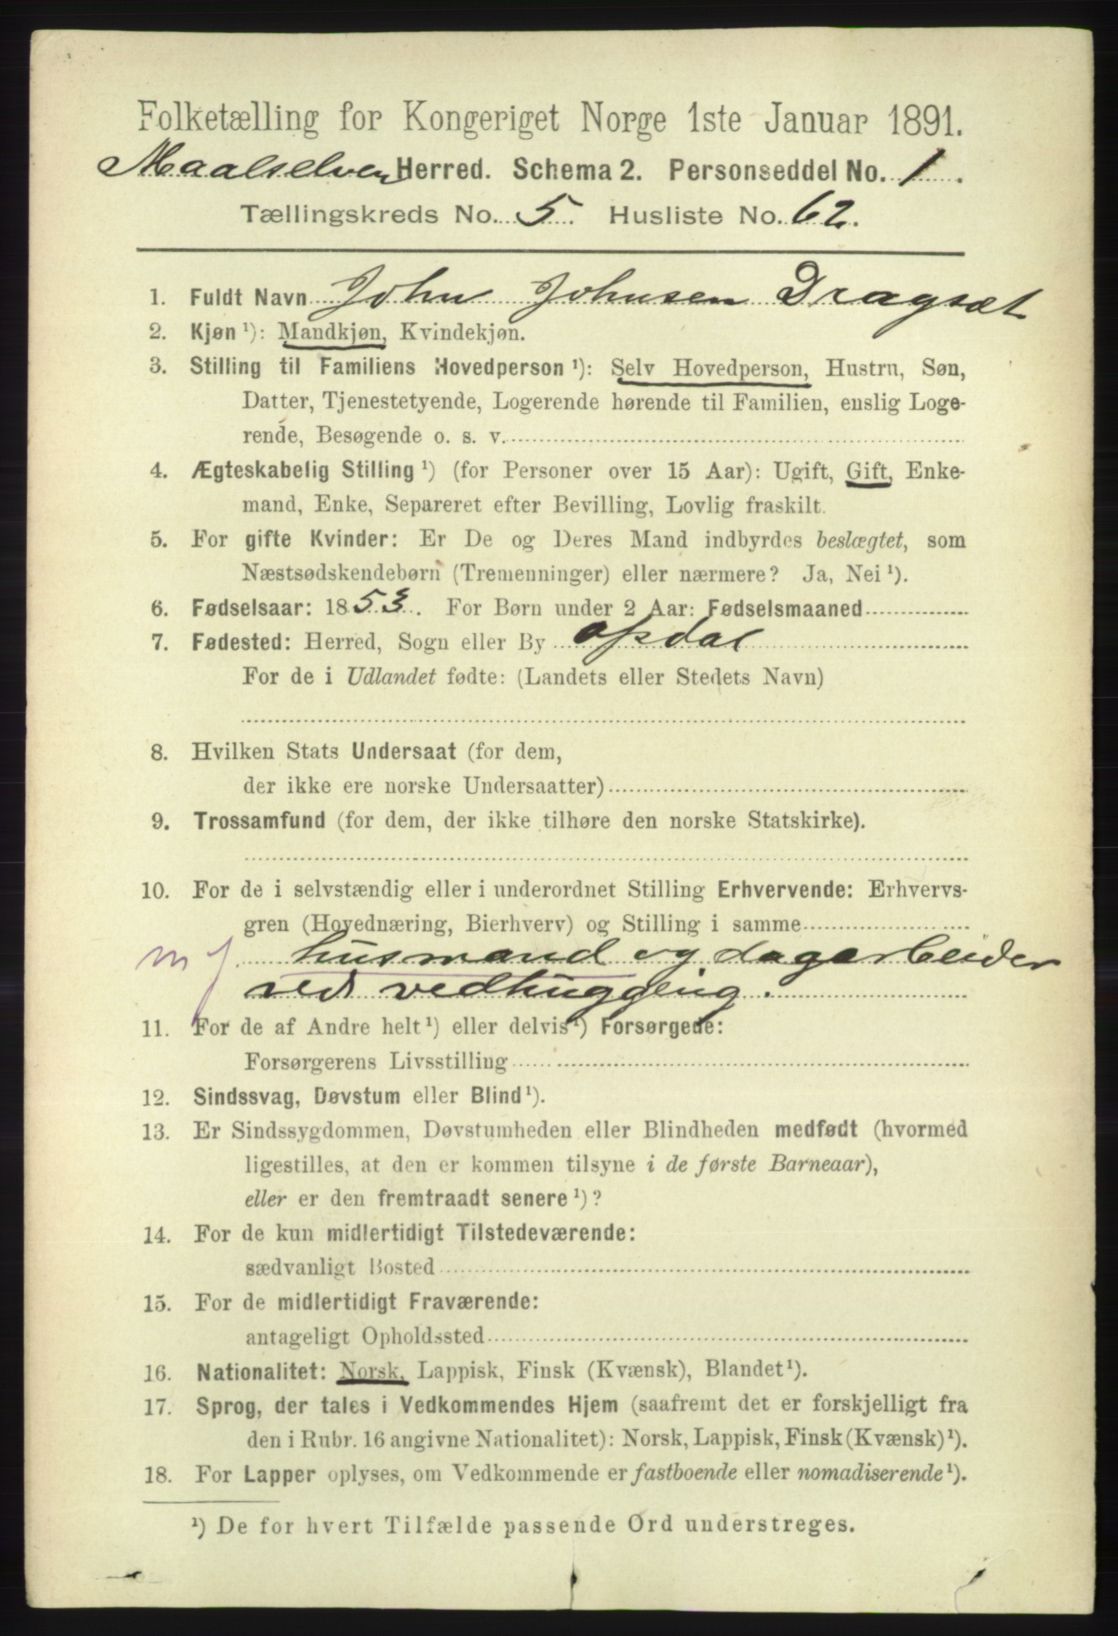 Folketælling for Kongeriget Norge 1ste Januar 1891.
Maalselven Herred. Schema 2. Personseddel No. 1.
Tællingskreds No. 5. Husliste No. 62.
1. Fuldt Navn John Johnsen Dragsæt
2. Kjøn ¹): Mandkjøn, Kvindekjøn.
3. Stilling til Familiens Hovedperson ¹): Selv Hovedperson, Hustru, Søn,
Datter, Tjenestetyende, Logerende hørende til Familien, enslig Loge-
rende, Besøgende o. s. v.
4. Ægteskabelig Stilling ¹) (for Personer over 15 Aar): Ugift, Gift, Enke-
mand, Enke, Separeret efter Bevilling, Lovlig fraskilt.
5. For gifte Kvinder: Er De og Deres Mand indbyrdes beslægtet, som
Næstsødskendebørn (Tremenninger) eller nærmere? Ja, Nei ¹).
6. Fødselsaar: 1853. For Børn under 2 Aar: Fødselsmaaned
7. Fødested: Herred, Sogn eller By opdal
For de i Udlandet fødte: (Landets eller Stedets Navn)
8. Hvilken Stats Undersaat (for dem,
der ikke ere norske Undersaatter)
9. Trossamfund (for dem, der ikke tilhøre den norske Statskirke).
10. For de i selvstændig eller i underordnet Stilling Erhvervende: Erhvervs-
gren (Hovednæring, Bierhverv) og Stilling i samme
mf husmand og dagarbeider
ved vedhugging.
11. For de af Andre helt ¹) eller delvis ¹) Forsørgede:
Forsørgerens Livsstilling
12. Sindssvag, Døvstum eller Blind ¹).
13. Er Sindssygdommen, Døvstumheden eller Blindheden medfødt (hvormed
ligestilles, at den er kommen tilsyne i de første Barneaar),
eller er den fremtraadt senere ¹)?
14. For de kun midlertidigt Tilstedeværende:
sædvanligt Bosted
15. For de midlertidigt Fraværende:
antageligt Opholdssted
16. Nationalitet: Norsk, Lappisk, Finsk (Kvænsk), Blandet ¹).
17. Sprog, der tales i Vedkommendes Hjem (saafremt det er forskjelligt fra
den i Rubr. 16 angivne Nationalitet): Norsk, Lappisk, Finsk (Kvænsk) ¹).
18. For Lapper oplyses, om Vedkommende er fastboende eller nomadiserende ¹).
¹) De for hvert Tilfælde passende Ord understreges.